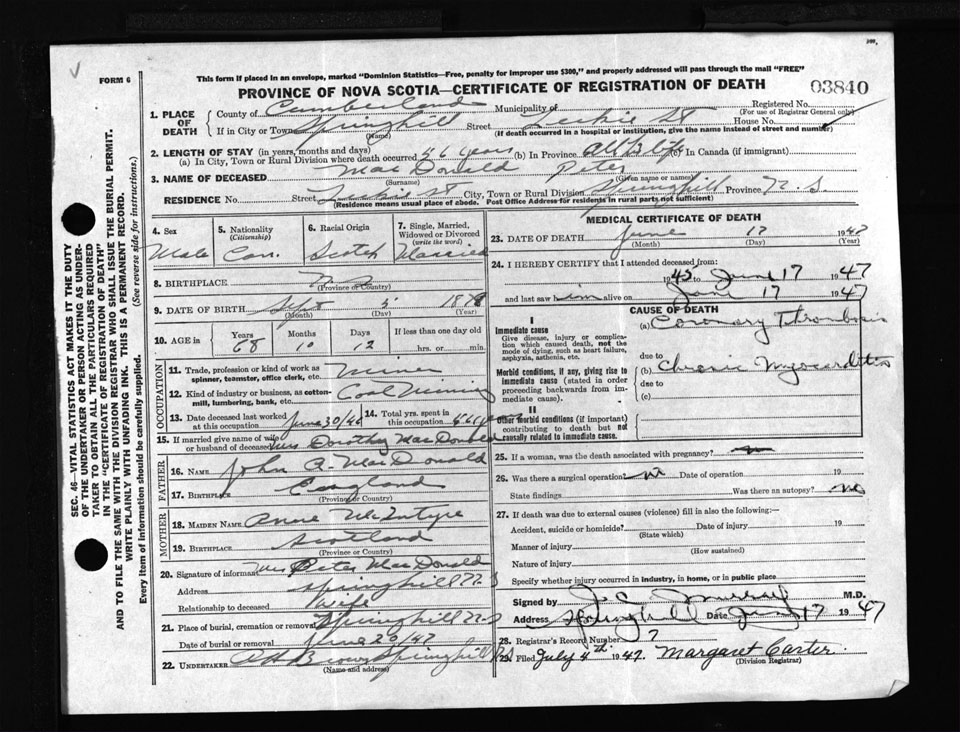 FORM 6
This form if placed in an envelope, marked "Dominion Statistics—Free, penalty for improper use $300," and properly addressed will pass through the mail "FREE"
PROVINCE OF NOVA SCOTIA—CERTIFICATE OF REGISTRATION OF DEATH
03840
1. PLACE OF DEATH
County of Cumberland Municipality of Registered No.
(For use of Registrar General only)
If in City or Town Springhill Street Leckie St House No.
(Name) (If death occurred in a hospital or institution, give the name instead of street and number)
2. LENGTH OF STAY (in years, months and days)
(a) In City, Town or Rural Division where death occurred 46 years (b) In Province All His life (c) In Canada (if immigrant)
3. NAME OF DECEASED MacDonald Peter
(Surname) (Given name or names)
RESIDENCE No. Street Leckie St City, Town or Rural Division Springhill Province N.S.
(Residence means usual place of abode. Post Office Address for residents in rural parts not sufficient)
4. Sex 5. Nationality (Citizenship) 6. Racial Origin 7. Single, Married, Widowed or Divorced (write the word)
Male Can. Scotch Married
8. BIRTHPLACE N S
(Province or Country)
9. DATE OF BIRTH Sept 5 1878
(Month) (Day) (Year)
10. AGE in Years Months Days If less than one day old
68 10 12 hrs. or min.
OCCUPATION
11. Trade, profession or kind of work as spinner, teamster, office clerk, etc. Miner
12. Kind of industry or business, as cotton-mill, lumbering, bank, etc. Coal Mining
13. Date deceased last worked at this occupation June 30/46 14. Total yrs. spent in this occupation
15. If married give name of wife or husband of deceased Mrs Dorothy MacDonald
FATHER
16. Name John A. MacDonald
17. Birthplace England
(Province or Country)
MOTHER
18. Maiden Name Anne McIntyre
19. Birthplace Scotland
(Province or Country)
20. Signature of informant Mrs Peter MacDonald
Address Springhill N S
Relationship to deceased Wife
21. Place of burial, cremation or removal Springhill N.S
Date of burial or removal June 20/47
22. Undertaker Brown Springhill NS
(Name and address)
MEDICAL CERTIFICATE OF DEATH
23. DATE OF DEATH June 17 1947
(Month) (Day) (Year)
24. I HEREBY CERTIFY that I attended deceased from:
1945 to June 17 1947
and last saw him alive on June 17 1947
CAUSE OF DEATH
I
Immediate cause
Give disease, injury or complication which caused death, not the mode of dying, such as heart failure, asphyxia, asthenia, etc.
(a) Coronary Thrombosis
due to
Morbid conditions, if any, giving rise to immediate cause (stated in order proceeding backwards from immediate cause)
(b) Chronic Myocarditis
due to
(c)
II
Other morbid conditions (if important) contributing to death but not causally related to immediate cause.
25. If a woman, was the death associated with pregnancy?
26. Was there a surgical operation no Date of operation 19
State findings Was there an autopsy? no
27. If death was due to external causes (violence) fill in also the following:—
Accident, suicide or homicide? Date of injury 19
(State which)
Manner of injury
(How sustained)
Nature of injury
Specify whether injury occurred in industry, in home, or in public place
Signed by Murray M.D.
Address Springhill Date June 17 1947
28. Registrar's Record Number 7
29. Filed July 4th 1947. Margaret Carter.
(Division Registrar)
SEC. 46—VITAL STATISTICS ACT MAKES IT THE DUTY
OF THE UNDERTAKER OR PERSON ACTING AS UNDER-
TAKER TO OBTAIN ALL THE PARTICULARS REQUIRED
IN THE "CERTIFICATE OF REGISTRATION OF DEATH"
AND TO FILE THE SAME WITH THE DIVISION REGISTRAR WHO SHALL ISSUE THE BURIAL PERMIT.
WRITE PLAINLY WITH UNFADING INK. THIS IS A PERMANENT RECORD.
Every item of information should be carefully supplied. (See reverse side for instructions.)